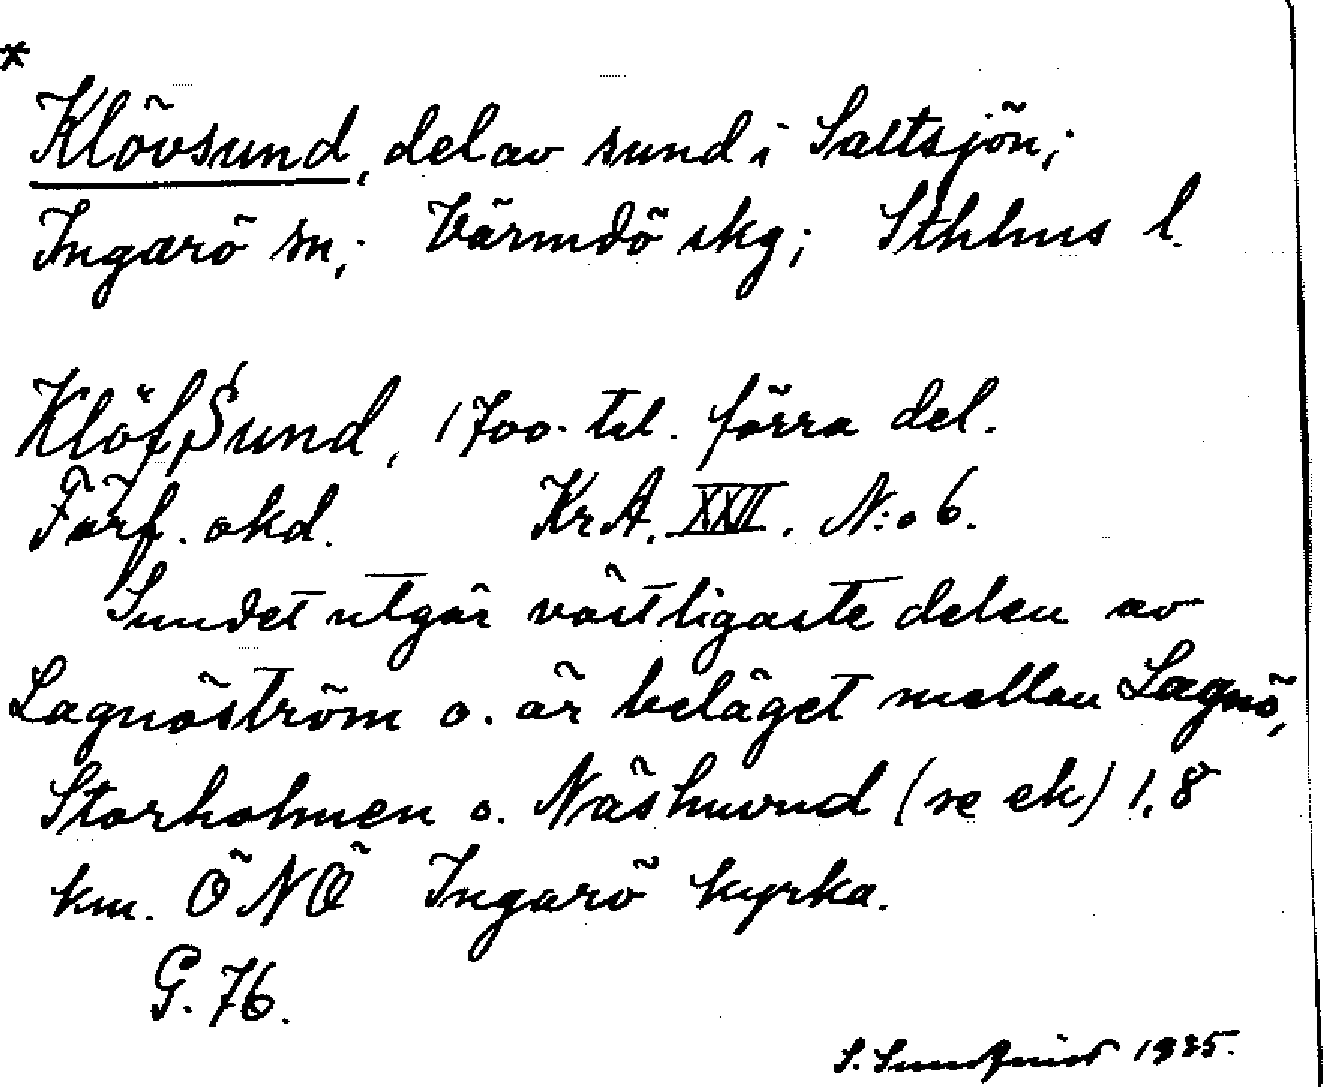 *
Klövsund, del av sund i Saltsjön;
Ingarö sn; Värmdö skg; Sthlms l.
Klöf Sund, 1700-tal. förra del.
Förf. okd. KrA. XXII. N:o 6.
Sundet utgör västligaste delen av
Lagnöström o. är beläget mellan Lagnö,
Storholmen o. Näshuvud (se ek) 1,8
km. ÖNÖ Ingarö kyrka.
G. 76.
S. Sundqvist 1935.